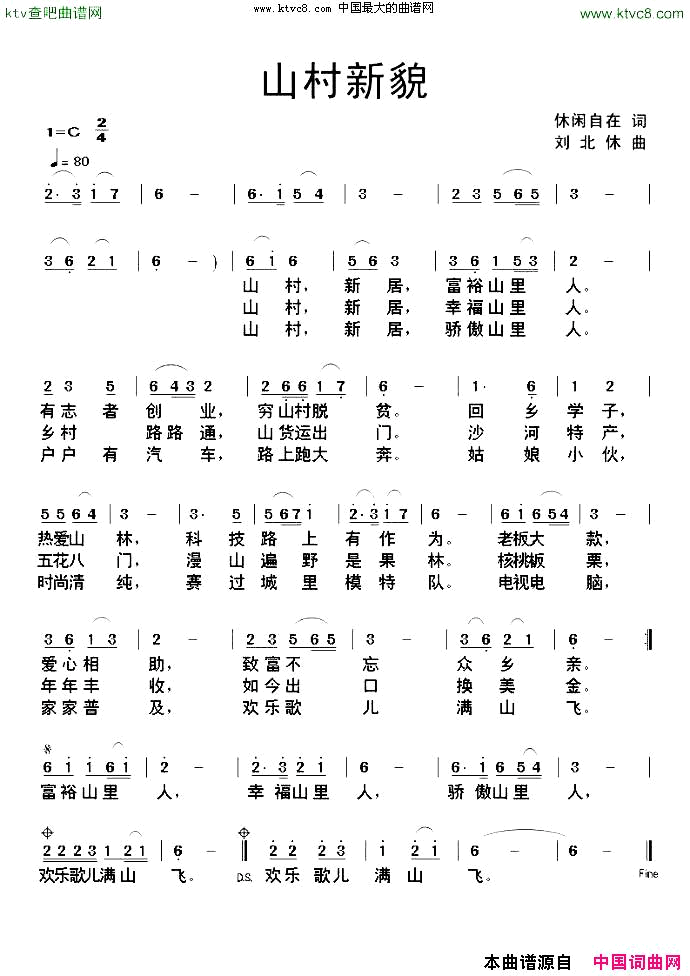 ktv查吧曲谱网 www.ktvc8.com 中国最大的曲谱网 www.ktvc8.com
山村新貌
1=C 2/4 休闲自在 词
♩=80 刘北休 曲
2· 3 1 7 | 6 - | 6· 1 5 4 | 3 - | 2 3 5 6 5 |
3 6 2 1 | 6 - ) | 6 1 6 | 5 6 3 | 3 6 1 5 3 | 2 - |
山 村, 新 居, 富裕山里 人。
山 村, 新 居, 幸福山里 人。
山 村, 新 居, 骄傲山里 人。
2 3 5 | 6 4 3 2 | 2 6 6 1 7 | 6 - | 1· 6 | 1 2 |
有志 者 创 业, 穷山村脱 贫。 回 乡 学 子,
乡村 路路通, 山货运出 门。 沙 河 特 产,
户户 有 汽 车, 路上跑大 奔。 姑 娘 小 伙,
5 5 6 4 | 3 - | 3· 5 | 5 6 7 1 | 2· 3 1 7 | 6 - | 6 1 6 5 4 |
热爱山 林, 科 技 路 上 有 作 为。 老板大 款,
五花八 门, 漫 山 遍 野 是 果 林。 核桃板 栗,
时尚清 纯, 赛 过 城 里 模 特 队。 电视电 脑,
3 6 1 3 | 2 - | 2 3 5 6 5 | 3 - | 3 6 2 1 | 6 - :|
爱心相 助, 致富不 忘 众 乡 亲。
年年丰 收, 如今出 口 换 美 金。
家家普 及, 欢乐歌 儿 满 山 飞。
6 1 1 6 1 | 2 - | 2· 3 2 1 | 6 - | 6· 1 6 5 4 | 3 - |
富裕山里 人, 幸 福山里 人, 骄 傲山里 人,
2 2 2 3 1 2 1 | 6 - || 2 2 3 3 | 1 2 1 | 6 - | 6 - ||
欢乐歌儿满山 飞。 D.S. 欢乐 歌儿 满 山 飞。 Fine
本曲谱源自 中国词曲网